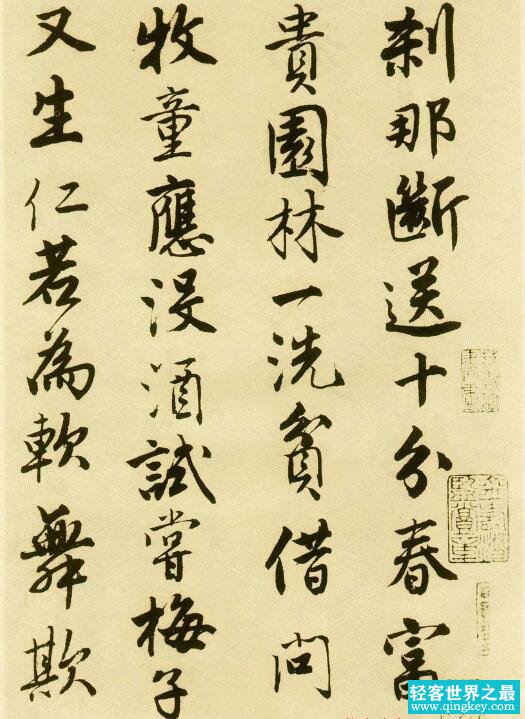 刹那斷送十分春富
貴園林一洗貧借問
牧童應沒酒試嘗梅子
又生仁若為軟舞欺
轻客世界之最
www.qingkey.com